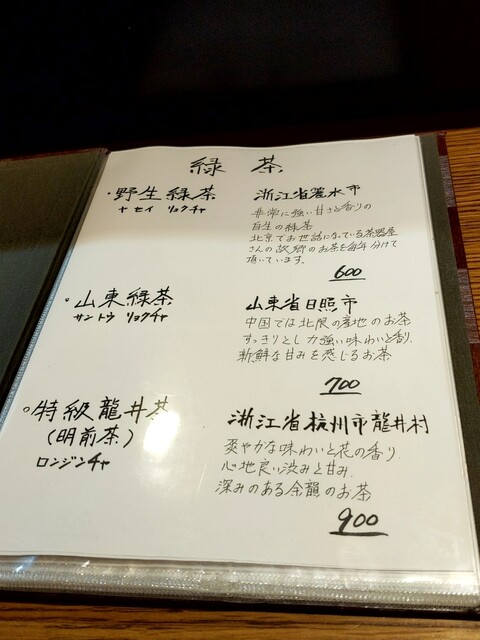 緑茶
・野生緑茶
ヤセイ リョクチャ
浙江省麗水市
非常に強い甘さと香りの
自生の緑茶
北京でお世話になっている茶器屋
さんの故郷のお茶を毎年分けて
頂いています。
600
・山東緑茶
サントウ リョクチャ
山東省日照市
中国では北限の産地のお茶
すっきりとし力強い味わいと香り、
新鮮な甘みを感じるお茶
700
・特級龍井茶
(明前茶)
ロンジンチャ
浙江省杭州市龍井村
爽やかな味わいと花の香り
心地良い渋みと甘み、
深みのある余韻のお茶
900